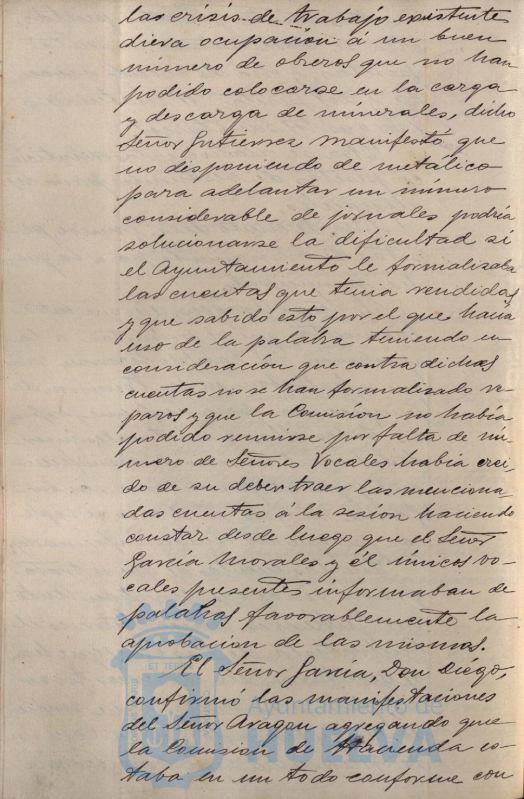 las crisis de trabajo existente
diera ocupación á un buen
número de obreros que no han
podido colocarse en la carga
y descarga de minerales, dicho
Señor Gutierrez manifestó que
no disponiendo de metálico
para adelantar un número
considerable de jornales podría
solucionarse la dificultad si
el Ayuntamiento le formalizaba
las cuentas que tenia rendidas
y que sabido esto por el que hacia
uso de la palabra teniendo en
consideración que contra dichas
cuentas no se han formalizado re-
paros y que la Comision no había
podido reunirse por falta de nú-
mero de Señores Vocales había crei-
do de su deber traer las menciona-
das cuentas á la sesión haciendo
constar desde luego que el Señor
García Morales y él únicos vo-
cales presentes informaban de
palabras favorablemente la
aprobacion de las mismas.
El Señor García, Don Diégo,
confirmó las manifestaciones
del Señor Aragon agregando que
la Comision de Hacienda es-
taba en un todo conforme con
Ayuntamiento de
HUELVA